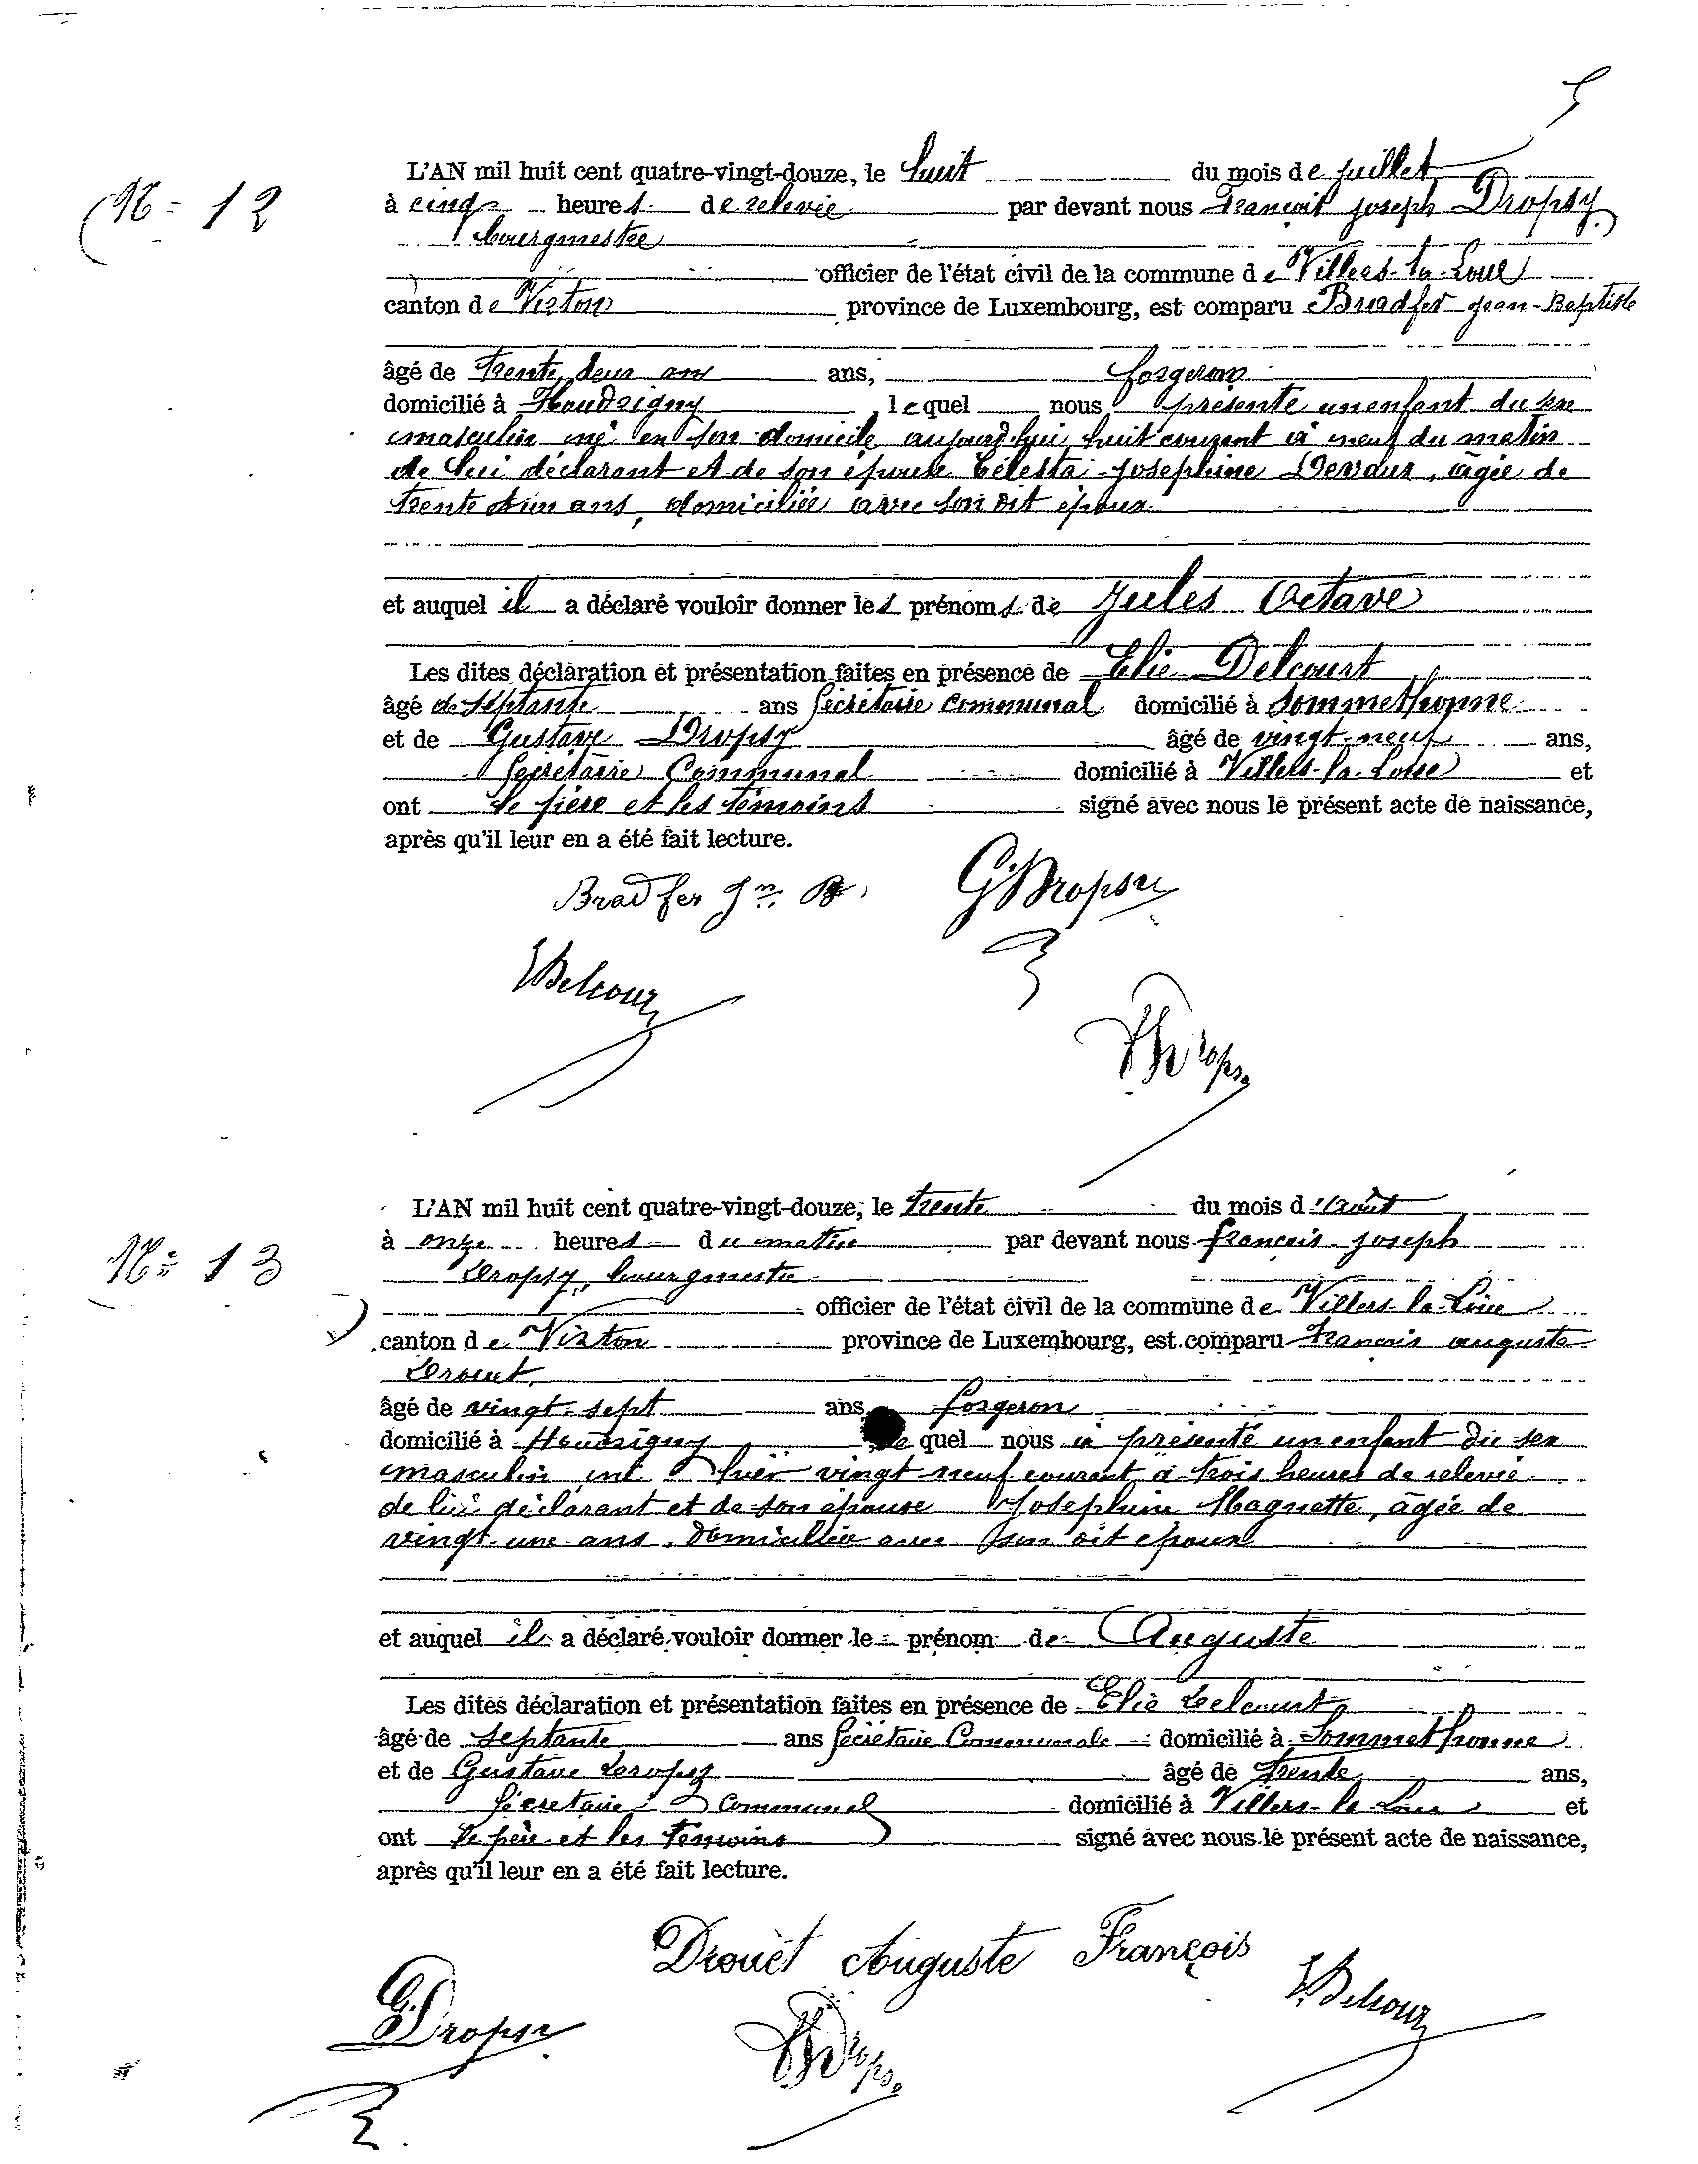 5
L'AN mil huit cent quatre-vingt-douze, le huit du mois de juillet
No 12
à cinq heures de relevée par devant nous François joseph Dropsy
bourgmestre
officier de l'état civil de la commune de Villers-la-Loue
canton de Virton province de Luxembourg, est comparu Bradfer jean-Baptiste
âgé de trente deux ans ans, forgeron
domicilié à Houdrigny lequel nous présente un enfant du sex
masculin né en son domicile aujourd'hui huit courant à neuf du matin
de lui déclarant et de son épouse Célesta josephine Devaux, âgée de
trente et un ans, domiciliée avec son dit époux
et auquel il a déclaré vouloir donner les prénoms de Jules Octave
Les dites déclaration et présentation faites en présence de Elie Delcourt
âgé de septante ans Sécrétaire communal domicilié à Sommethonne
et de Gustave Dropsy âgé de vingt-neuf ans,
Secrétaire Communal domicilié à Villers-la-Loue et
ont le père et les témoins signé avec nous le présent acte de naissance,
après qu'il leur en a été fait lecture.
Bradfer Jn. B. G Dropsy
E Delcour
Dropsy
L'AN mil huit cent quatre-vingt-douze, le trente du mois d'août
No 13
à onze heures du matin par devant nous françois joseph
Dropsy, bourgmestre
officier de l'état civil de la commune de Villers-la-Loue
canton de Virton province de Luxembourg, est comparu François auguste
Drouet
âgé de vingt-sept ans forgeron
domicilié à Houdrigny le quel nous à présenté un enfant du sex
masculin né hier vingt neuf courant à trois heures de relevée
de lui déclarant et de son épouse Josephine Magnette, âgée de
vingt-une ans, domiciliée avec son dit époux
et auquel il a déclaré vouloir donner le prénom de Auguste
Les dites déclaration et présentation faites en présence de Elie Delcourt
âgé de septante ans Sécrétaire Communale domicilié à Sommethonne
et de Gustave Dropsy âgé de trente ans,
Sécretaire Communal domicilié à Villers-la-Loue et
ont le père et les témoins signé avec nous le présent acte de naissance,
après qu'il leur en a été fait lecture.
Drouèt Auguste François
E Delcour
G. Dropsy
Dropsy